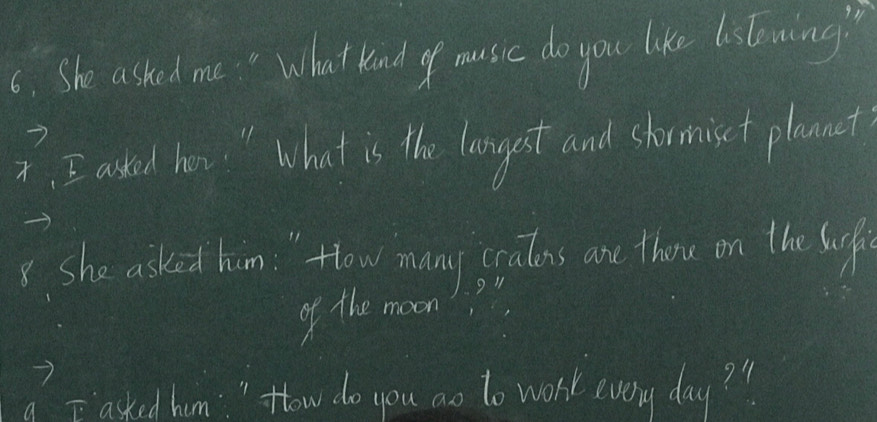 6. She asked me: "What kind of music do you like listening?"
→
7. I asked her: "What is the largest and stormiset plannet?
→
8. She asked him: "How many craters are there on the
of the moon?"
→
9 I asked him: "How do you go to work every day?"